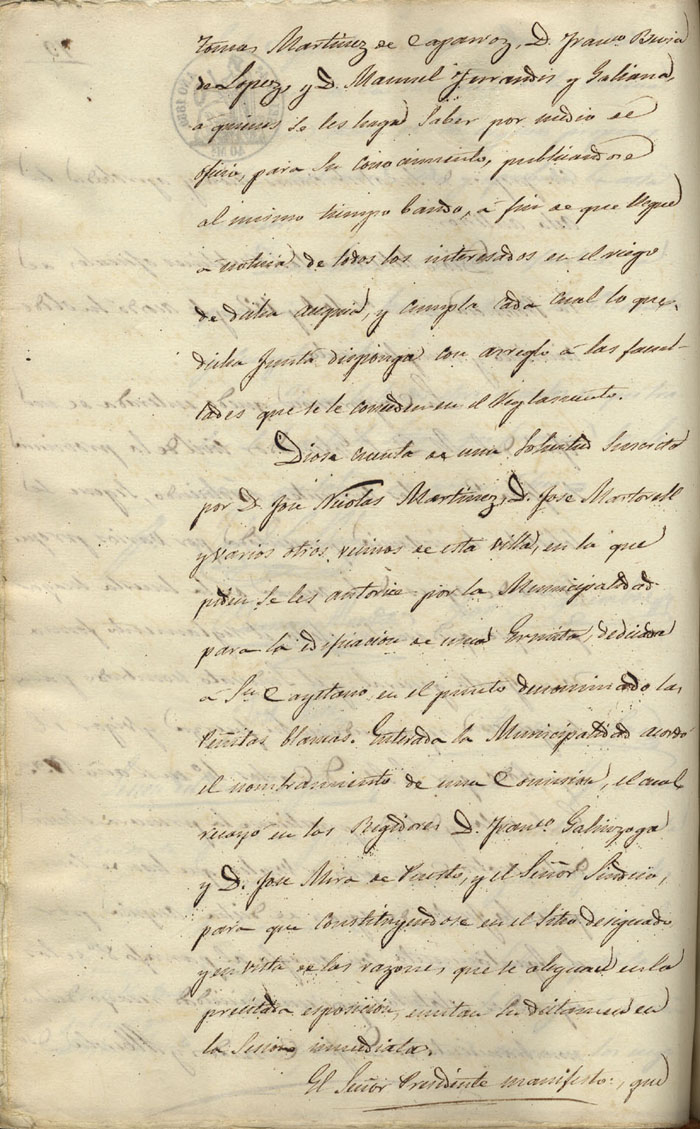 Tomas Martinez de Caparroz, D. Franco. Buvia
de Lopez, y D. Manuel Ferrandis y Galiana,
a quienes se les haga saber por medio de
oficio, para su conocimiento, publicandose
al mismo tiempo bando, á fin de que llegue
a noticia de todos los interesados en el riego
de dicha acequia, y cumpla cada cual lo que
dicha Junta disponga con arreglo á las facul-
tades que se le conceden en el Reglamento.
Diose cuenta de una solicitud suscrita
por D. José Nicolas Martinez, D. Jose Martorell
y varios otros vecinos de esta villa, en la que
piden se les autorice por la Municipalidad
para la edificacion de una Ermita, dedicada
á Sn. Cayetano en el punto denominado las
Peñitas blancas. Enterada la Municipalidad acordó
el nombramiento de una Comision, el cual
recayo en los Regidores D. Franco. Galinzoga
y D. Jose Mira de Puerto, y el Señor Sindico,
para que constituyendose en el sitio designado
y en vista de las razones que se alegan en la
precitada esposicion, emitan su dictamen en
la Sesion inmediata.
El Señor Presidente manifesto: que